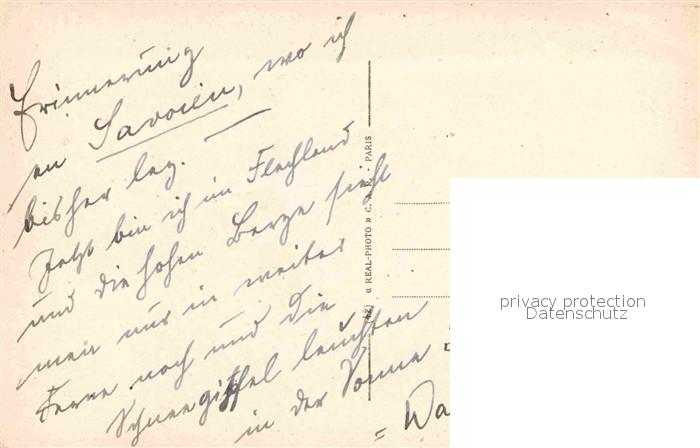 Erinnerung
an Savoien, wo ich
bisher lag. —
Jetzt bin ich im Flachland
und die hohen Berge sieht
man nur in weiter
Ferne noch und die
Schneegipfel leuchten
in der Sonne
= Wa
42) « REAL-PHOTO » C. A. P. - PARIS
privacy protection
Datenschutz